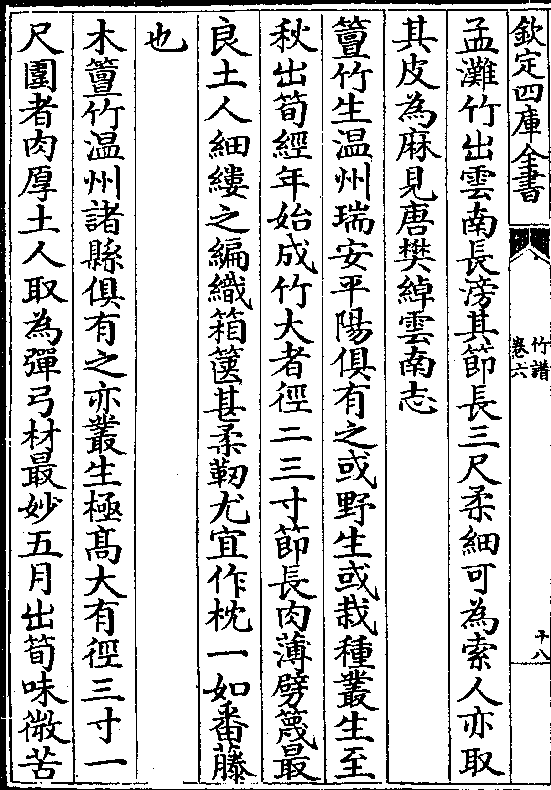 欽定四庫全書
竹譜
卷六
十八
孟灘竹出雲南長滂其節長三尺柔細可為索人亦取
其皮為麻見唐樊綽雲南志
簹竹生温州瑞安平陽俱有之或野生或栽種叢生至
秋出筍經年始成竹大者徑二三寸節長肉薄劈篾最
良土人細縷之編織箱篋甚柔靭尤宜作枕一如番藤
也
木簹竹温州諸縣俱有之亦叢生極髙大有徑三寸一
尺圍者肉厚土人取為彈弓材最妙五月出筍味微苦